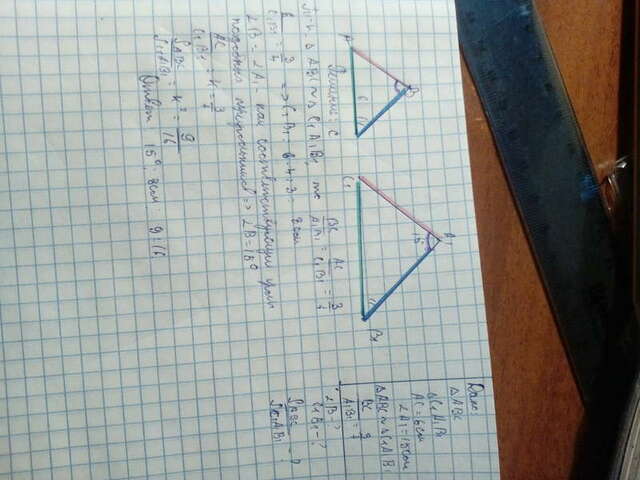 Дано:
△ABC
△C₁A₁B₁
AC = 6см
∠A₁ = 15см
△ABC ∾ △C₁A₁B₁
BC/A₁B₁ = 3/4
∠B - ?
C₁B₁ - ?
SABC/SC₁A₁B₁ - ?
A B C 6
C₁ A₁ B₁ 15
Решение:
Т.к. △ABC ∾ △C₁A₁B₁, то BC/A₁B₁ = AC/C₁B₁ = 3/4
6/C₁B₁ = 3/4 => C₁B₁ = 6·4:3 = 8см
∠B = ∠A₁ - как соответствующие углы
подобных треугольников => ∠B = 15°
AC/C₁B₁ = k = 3/4
SABC/SC₁A₁B₁ = k² = 9/16
Ответ: 15°; 8см; 9:16